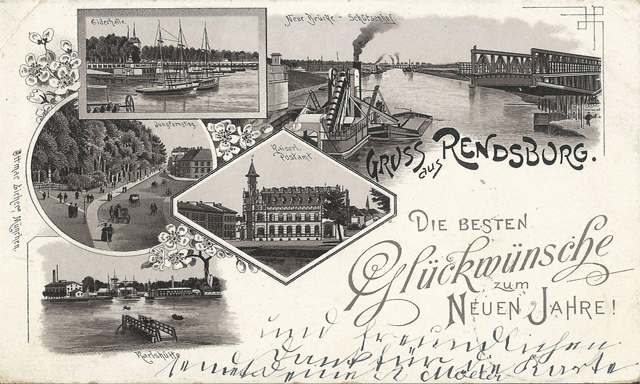 Eiderhalle.
Neue Brücke - Schützenhof
Jungfernstieg.
Kaiserl.
Postamt.
GRUSS aus RENDSBURG.
Ottmar Zieher, München.
DIE BESTEN
Glückwünsche
zum
NEUEN JAHRE!
Karlshütte
und freundlichen
Dank für die Karte